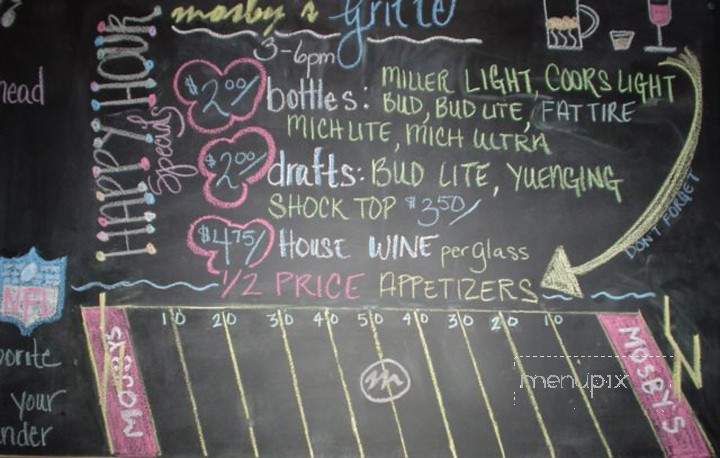 mosby's Grille
HAPPY HOUR
Specials
3-6pm
$2.00/ bottles: MILLER LIGHT, COORS LIGHT
BUD, BUD LITE, FAT TIRE
MICH LITE, MICH ULTRA
$2.00/ drafts: BUD LITE, YUENGING
SHOCK TOP $3.50/
$4.75/ HOUSE WINE per glass
1/2 PRICE APPETIZERS
DON'T FORGET
NFL
10 20 30 40 50 40 30 20 10
MOSBY'S
m
MOSBY'S
menupix
your